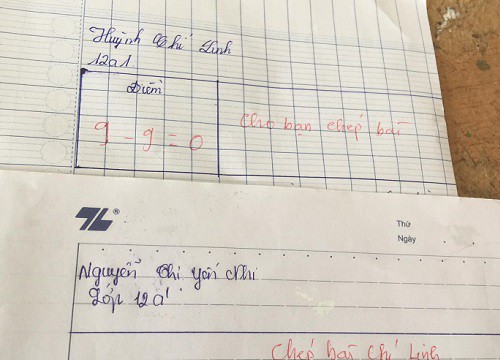 Huỳnh Chí Linh
12a1
Điểm
9 - 9 = 0
Cho bạn chép bài
TL®
Thứ
Ngày
Nguyễn Thị Yến Nhi
Lớp 12a1
Chép bài Chí Linh